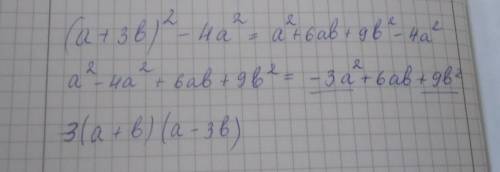 (a+3b)² - 4a² = a²+6ab+9b² - 4a²
a² - 4a² + 6ab + 9b² = -3a² + 6ab + 9b²
3(a+b)(a-3b)